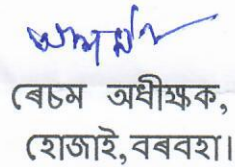 ৰেচম অধীক্ষক,
হোজাই, বৰবহা।